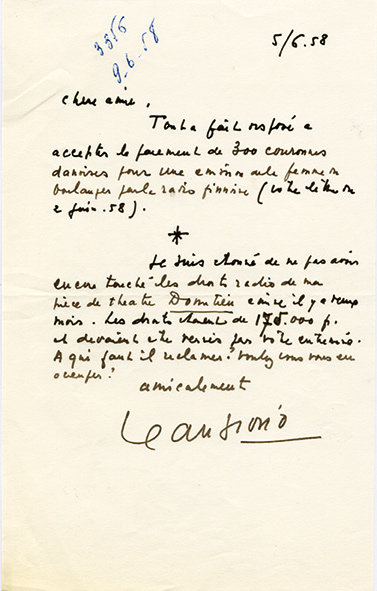 3356
9-6-58
5/6.58
chère amie,
Tout à fait disposé à
accepter le paiement de 300 couronnes
danoises pour une émission de la femme du
boulanger par la radio finnoise (votre lettre du
2 juin.58).
*
Je suis étonné de ne pas avoir
encore touché les droits radio de ma
pièce de théâtre Domitien émise il y a deux
mois. Les droits étaient de 175.000 f.
et devaient être versés par votre entremise.
A qui faut il réclamer? Voulez vous vous en
occuper?
amicalement
Jean Giono